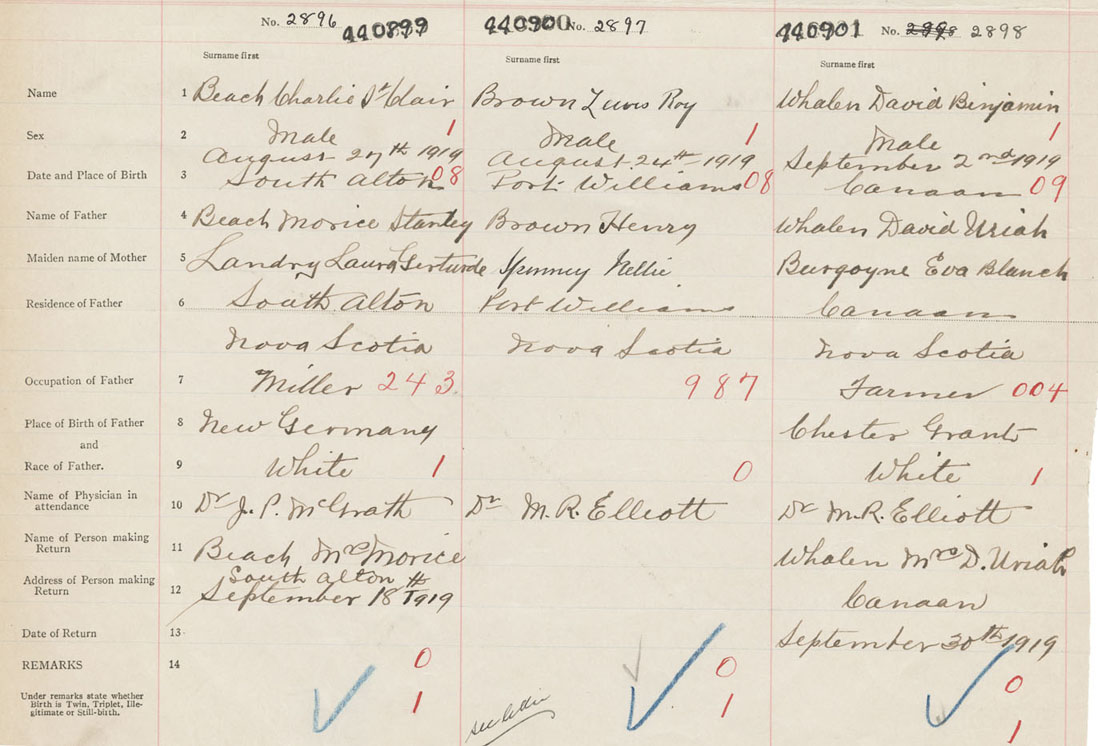 No. 2896 440899 440900 No. 2897 440901 No. 2898 2898
Surname first Surname first Surname first
Name 1 Beach Charlie St Clair Brown Luvis Roy Whalen David Binjamin
Sex 2 Male 1 Male 1 Male 1
August 27th 1919 August 24th 1919 September 2nd 1919
Date and Place of Birth 3 South Alton 08 Port Williams 08 Canaan 09
Name of Father 4 Beach Morice Stanley Brown Henry Whalen David Uriah
Maiden name of Mother 5 Landry Laura Gerturde Nellie Burgoyne Eva Blanch
Residence of Father 6 South Alton Port Williams Canaan
Nova Scotia Nova Scotia Nova Scotia
Occupation of Father 7 Miller 243 987 Farmer 004
Place of Birth of Father 8 New Germany Chester Grant
and
Race of Father. 9 White 1 0 White 1
Name of Physician in
attendance 10 Dr J. P. McGrath Dr M. R. Elliott Dr M. R. Elliott
Name of Person making
Return 11 Beach Mrs Morice Whalen Mrs D. Uriah
Address of Person making
Return 12 South Alton Canaan
September 18th 1919
Date of Return 13 September 30th 1919
REMARKS 14 0 0 0
Under remarks state whether
Birth is Twin, Triplet, Ille-
gitimate or Still-birth. 1 see 1 1